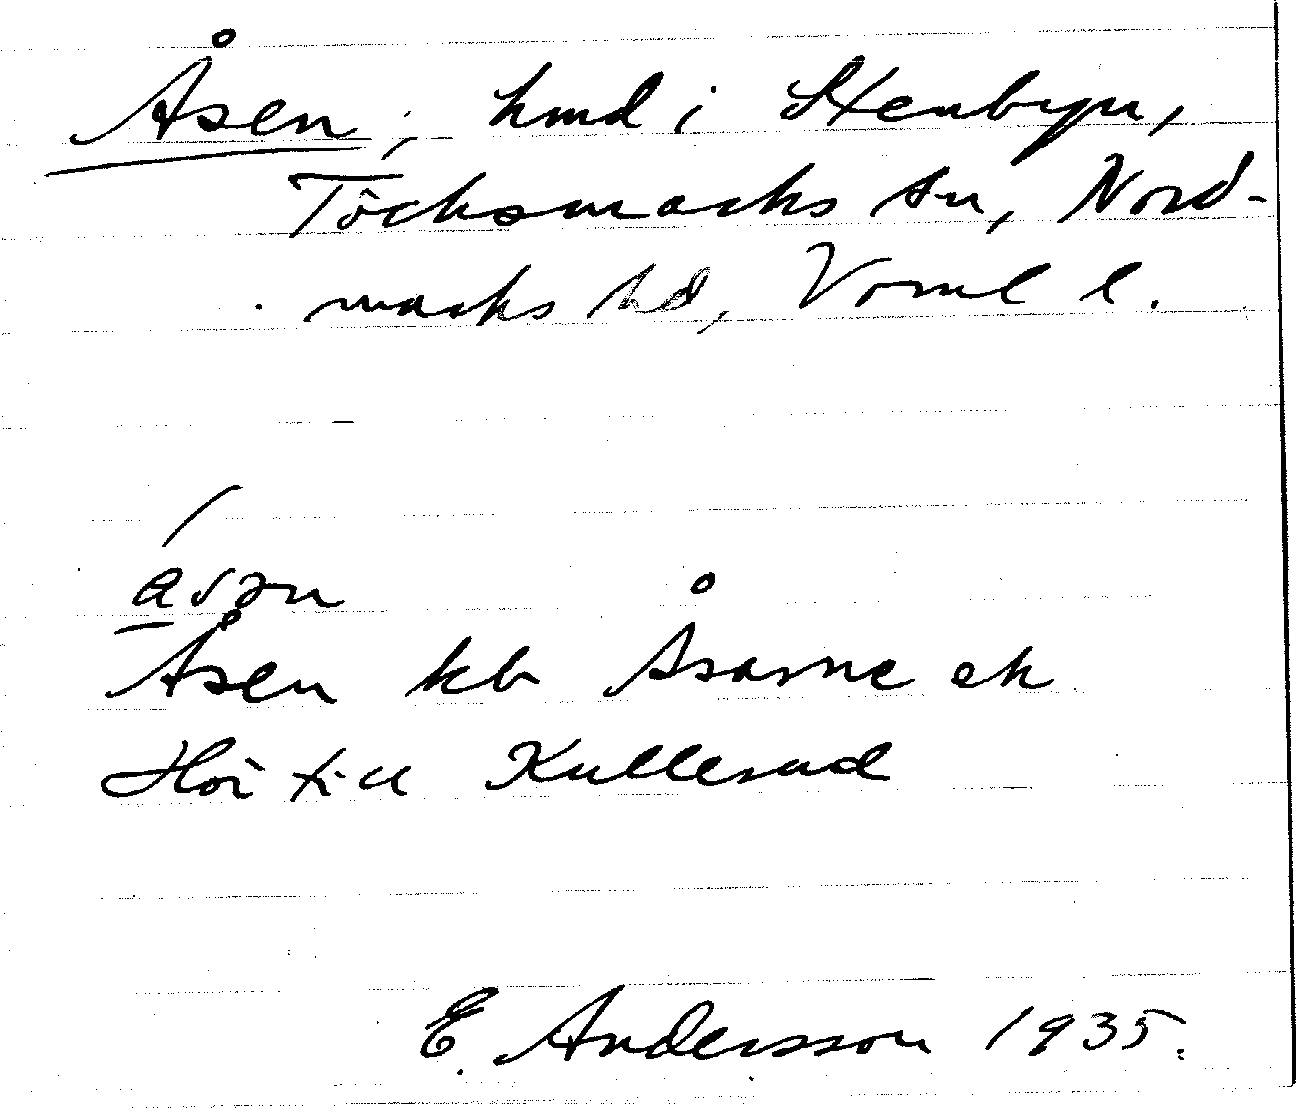 Åsen, hmd i Stenbyn,
Töcksmarks sn, Nord-
marks hd, Värml l.
åsən
Åsen kb Åsarne ek
Hör till Kullerud
E. Andersson 1935.